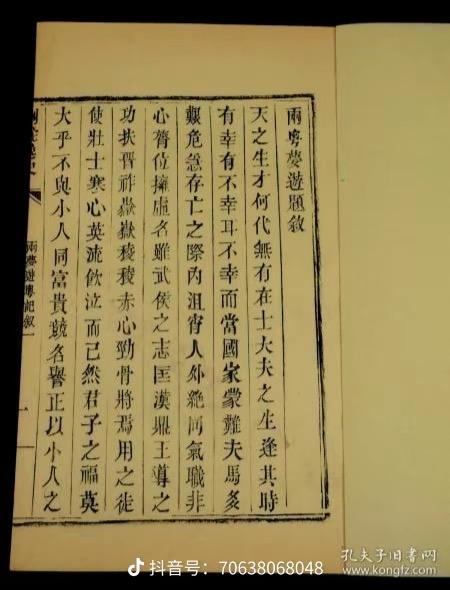 兩粵夢遊題敘
天之生才何代無有在士大夫之生逢其時
有幸有不幸耳不幸而當國家蒙難夫馬
艱危急存亡之際內沮宵人外絕同氣職非
心膂位擁虛名雖武侯之志匡漢鼎王導之
功扶晉祚嶽嶽稜稜赤心勁骨將焉用之徒
使壯士寒心英流飲泣而已然君子之福莫
大乎不與小人同富貴競名譽正以小人之
兩夢遊粵記叙
一
抖音号：70638068048
孔夫子旧書网
www.kongfz.com